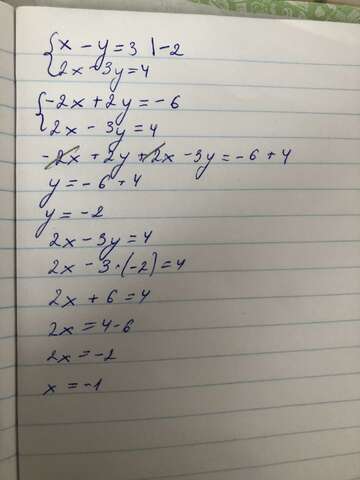 {x - y = 3 | -2
2x - 3y = 4
{-2x + 2y = -6
2x - 3y = 4
-2x + 2y + 2x - 3y = -6 + 4
y = -6 + 4
y = -2
2x - 3y = 4
2x - 3 · (-2) = 4
2x + 6 = 4
2x = 4 - 6
2x = -2
x = -1